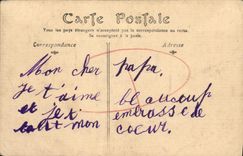 Carte Postale
Tous les pays étrangers n'acceptent pas la correspondance au recto.
Se renseigner à la poste.
Correspondance
Adresse
Mon cher papa,
je t'aime beaucoup
et je t'embrasse de
tout mon coeur.